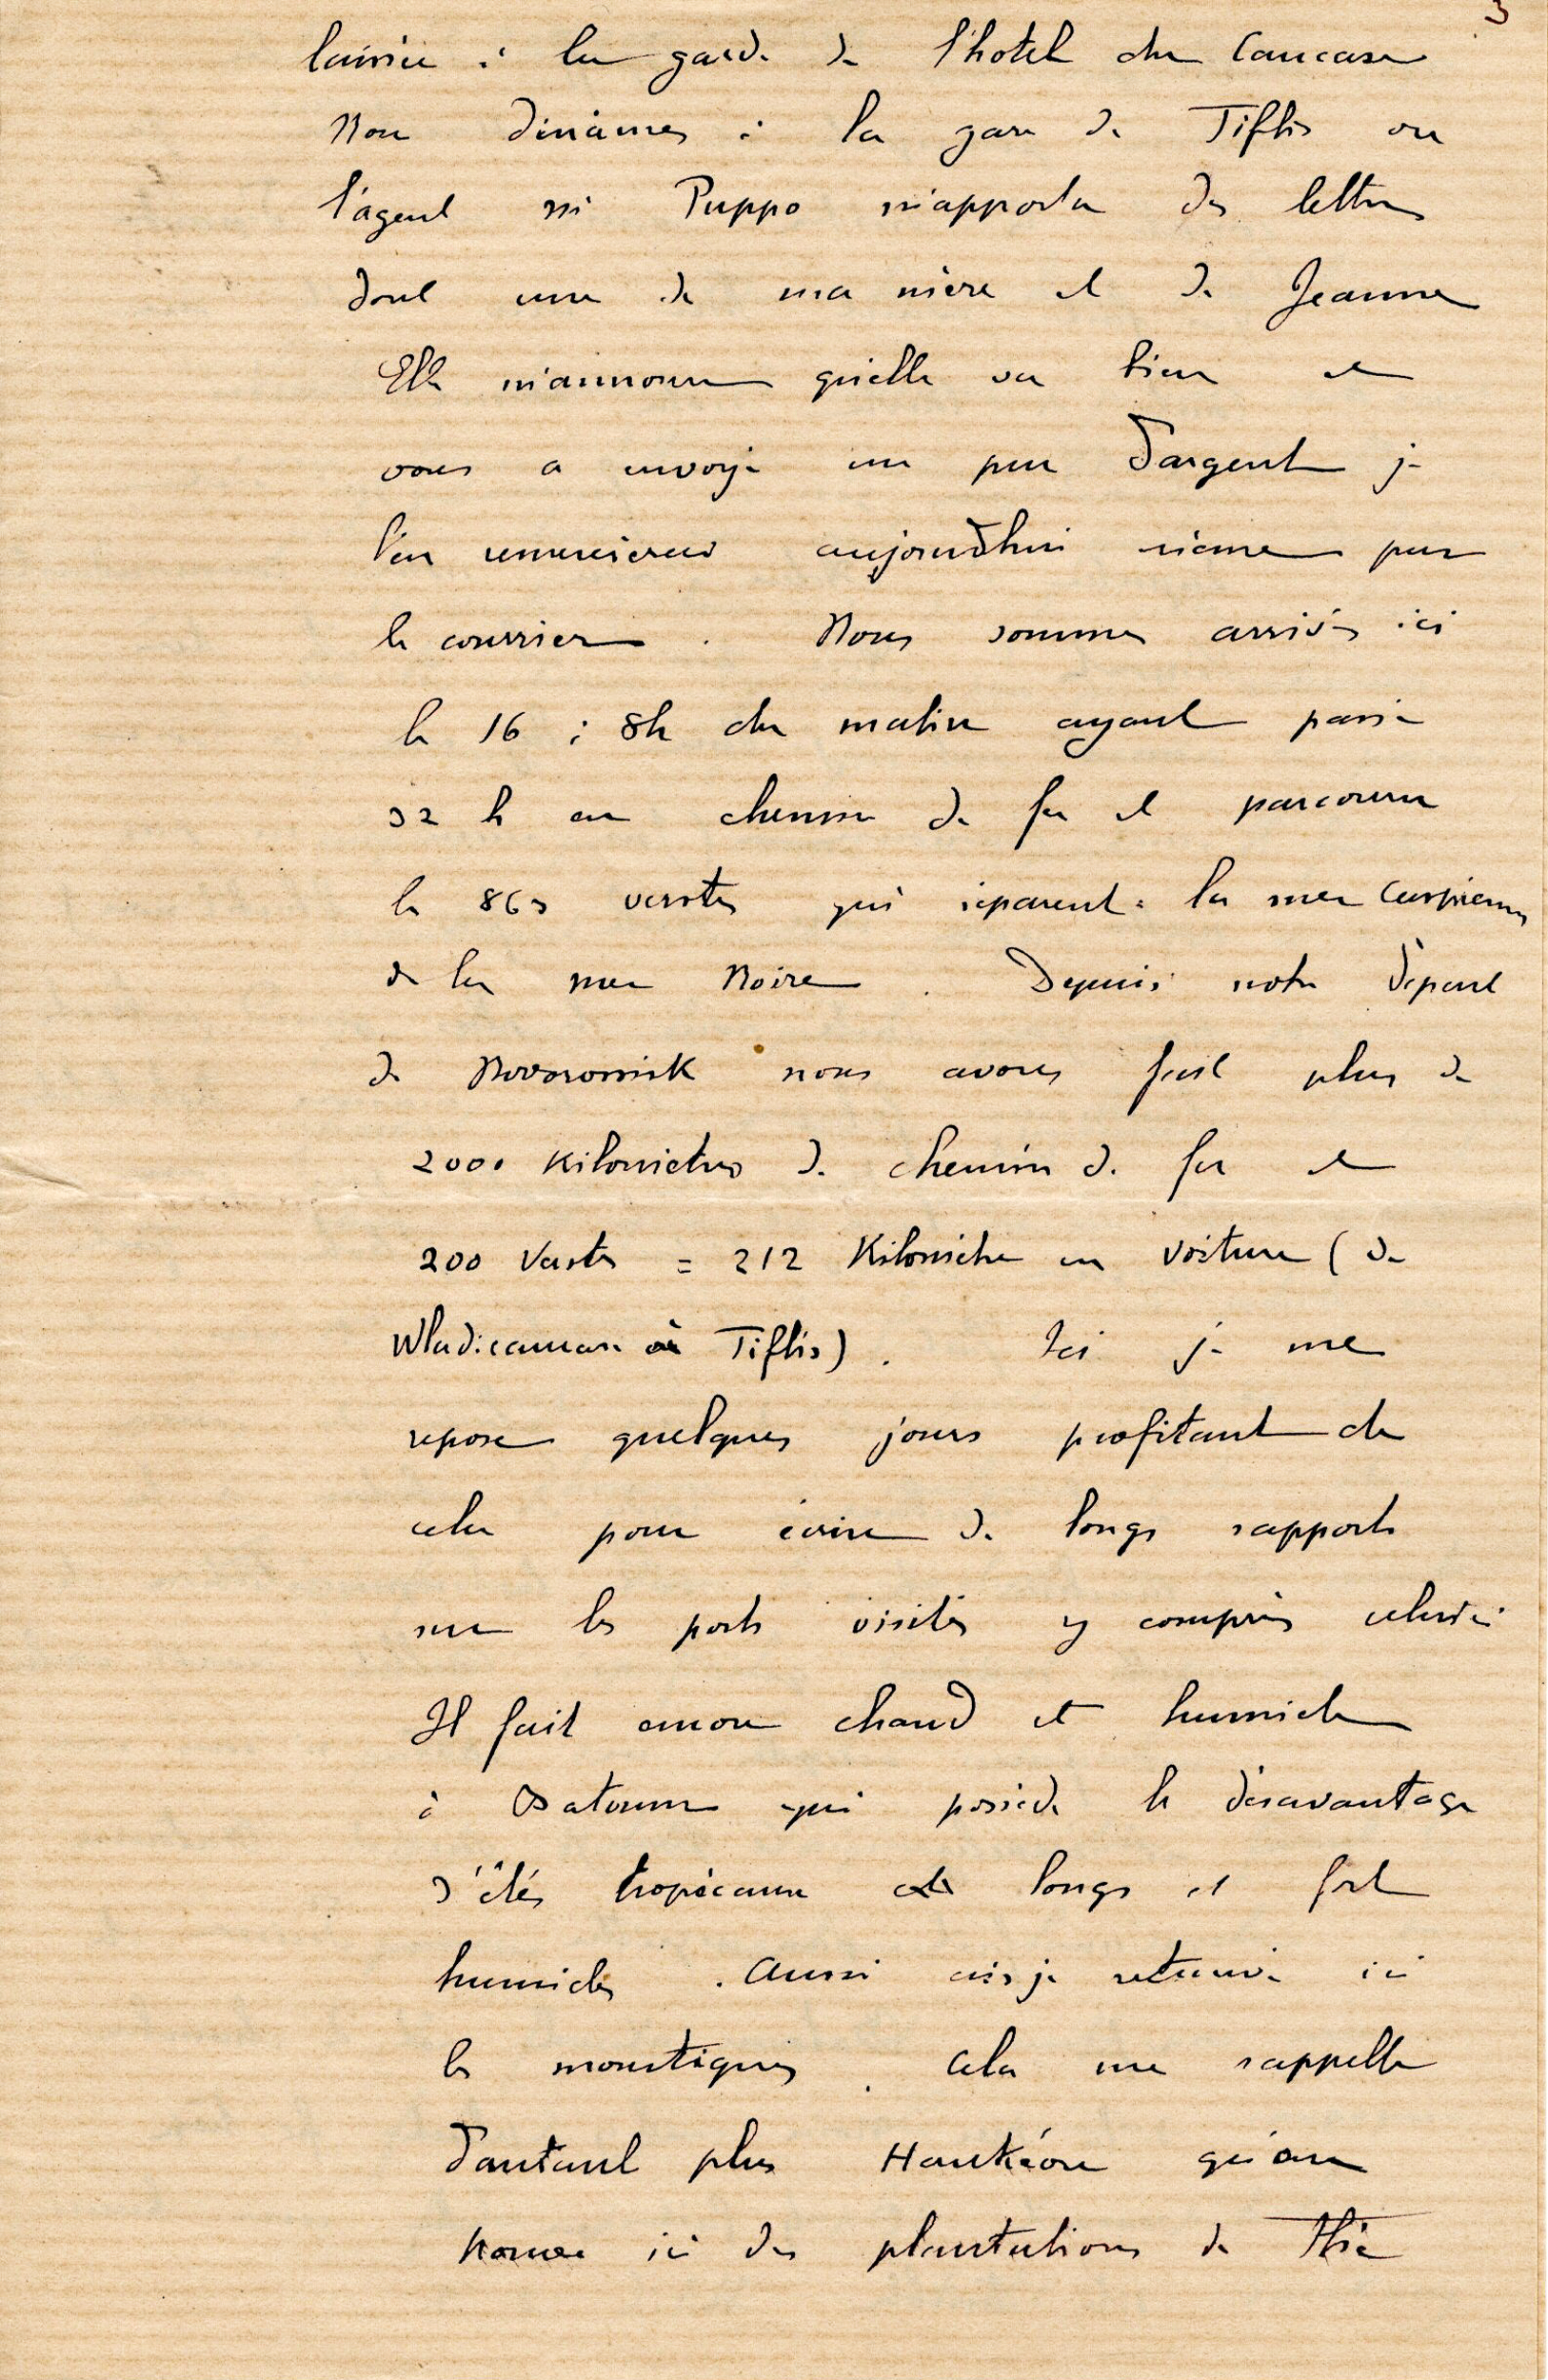 3
laissée à la garde de l'hotel du Caucase
Nous dinâmes à la gare de Tiflis ou
l'agent mr Puppo m'apporta des lettres
dont une de ma mère et de Jeanne
Elle m'annonce qu'elle va bien et
vous a envoyé un peu d'argent je
l'en remercierai aujourd'hui même par
le courrier. Nous sommes arrivés ici
le 16 à 8h du matin ayant passé
32 h en chemin de fer et parcouru
les 863 verstes qui séparent la mer Caspienne
de la mer Noire. Depuis notre départ
de Novorossisk nous avons fait plus de
2000 kilomètres de chemin de fer et
200 Verstes = 212 Kilomètres en voiture (de
Wladicaucase à Tiflis). Ici je me
repose quelques jours profitant de
cela pour écrire de longs rapports
sur les ports visités y compris celui ci
Il fait encore chaud et humide
à Batoum qui possède le désavantage
d'étés tropicaux longs et fort
humides. Aussi ais je retrouvé ici
les moustiques. Cela me rappelle
d'autant plus Hankéou qu'on
trouve ici des plantations de Thé